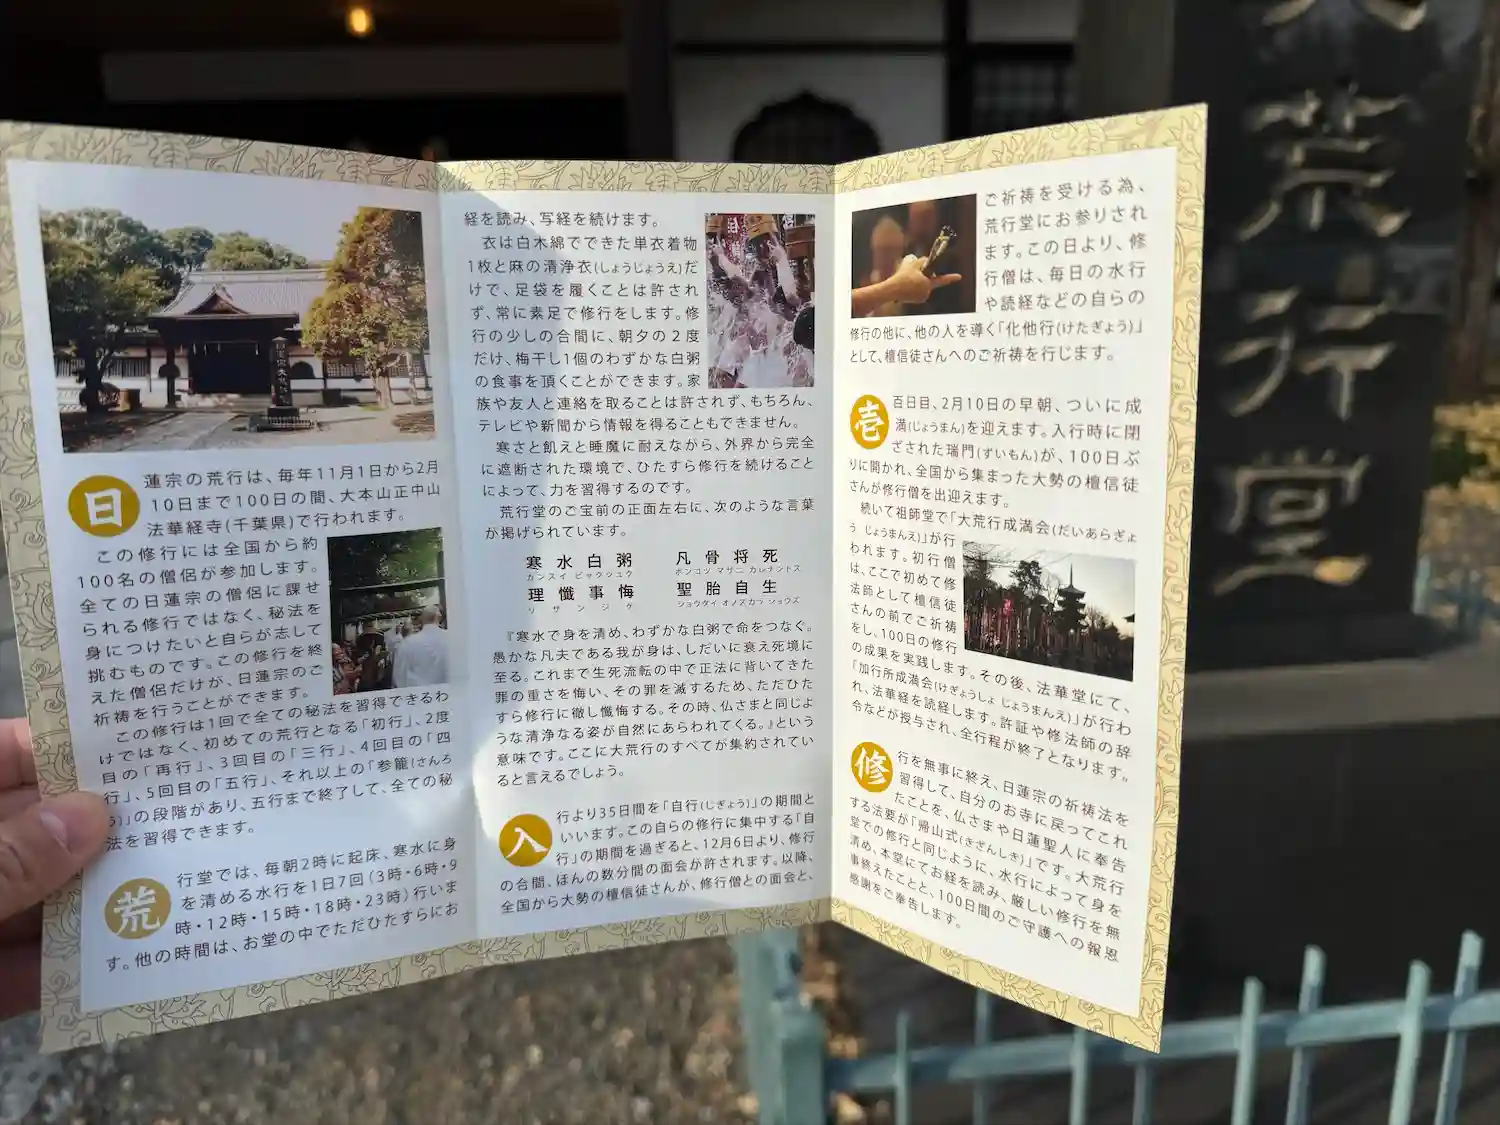 日
蓮宗の荒行は、毎年11月1日から2月
10日まで100日の間、大本山正中山
法華経寺(千葉県)で行われます。
この修行には全国から約
100名の僧侶が参加します。
全ての日蓮宗の僧侶に課せ
られる修行ではなく、秘法を
身につけたいと自らが志して
挑むものです。この修行を終
えた僧侶だけが、日蓮宗のご
祈祷を行うことができます。
この修行は1回で全ての秘法を習得できるわ
けではなく、初めての荒行となる「初行」、2度
目の「再行」、3回目の「三行」、4回目の「四
行」、5回目の「五行」、それ以上の「参籠(さんろ
う)」の段階があり、五行まで終了して、全ての秘
法を習得できます。
荒
行堂では、毎朝2時に起床、寒水に身
を清める水行を1日7回(3時・6時・9
時・12時・15時・18時・23時)行いま
す。他の時間は、お堂の中でただひたすらにお
経を読み、写経を続けます。
衣は白木綿でできた単衣着物
1枚と麻の清浄衣(しょうじょうえ)だ
けで、足袋を履くことは許され
ず、常に素足で修行をします。修
行の少しの合間に、朝夕の2度
だけ、梅干し1個のわずかな白粥
の食事を頂くことができます。家
族や友人と連絡を取ることは許されず、もちろん、
テレビや新聞から情報を得ることもできません。
寒さと飢えと睡魔に耐えながら、外界から完全
に遮断された環境で、ひたすら修行を続けること
によって、力を習得するのです。
荒行堂のご宝前の正面左右に、次のような言葉
が掲げられています。
寒水白粥 凡骨将死
カンスイ ビャクシュク ボンコツ マサニ カレナントス
理懺事悔 聖胎自生
リサンジゲ ショウタイ オノズカラ ショウズ
『寒水で身を清め、わずかな白粥で命をつなぐ。
愚かな凡夫である我が身は、しだいに衰え死境に
至る。これまで生死流転の中で正法に背いてきた
罪の重さを悔い、その罪を滅するため、ただひた
すら修行に徹し懺悔する。その時、仏さまと同じよ
うな清浄なる姿が自然にあらわれてくる。』という
意味です。ここに大荒行のすべてが集約されてい
ると言えるでしょう。
入
行より35日間を「自行(じぎょう)」の期間と
いいます。この自らの修行に集中する「自
行」の期間を過ぎると、12月6日より、修行
の合間、ほんの数分間の面会が許されます。以降、
全国から大勢の檀信徒さんが、修行僧との面会と、
ご祈祷を受ける為、
荒行堂にお参りされ
ます。この日より、修
行僧は、毎日の水行
や読経などの自らの
修行の他に、他の人を導く「化他行(けたぎょう)」
として、檀信徒さんへのご祈祷を行じます。
壱
百日目、2月10日の早朝、ついに成
満(じょうまん)を迎えます。入行時に閉
ざされた瑞門(ずいもん)が、100日ぶ
りに開かれ、全国から集まった大勢の檀信徒
さんが修行僧を出迎えます。
続いて祖師堂で「大荒行成満会(だいあらぎょ
う じょうまんえ)」が行
われます。初行僧
は、ここで初めて修
法師として檀信徒
さんの前でご祈祷
をし、100日の修行
の成果を実践します。その後、法華堂にて、
「加行所成満会(けぎょうしょ じょうまんえ)」が行わ
れ、法華経を読経します。許証や修法師の辞
令などが授与され、全行程が終了となります。
修
行を無事に終え、日蓮宗の祈祷法を
習得して、自分のお寺に戻ってこれ
たことを、仏さまや日蓮聖人に奉告
する法要が「帰山式(きざんしき)」です。大荒行
堂での修行と同じように、水行によって身を
清め、本堂にてお経を読み、厳しい修行を無
事終えたことと、100日間のご守護への報恩
感謝をご奉告します。
荒行堂